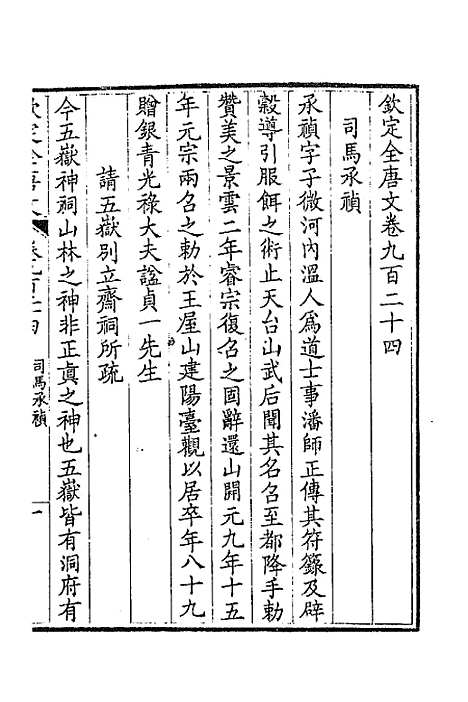 欽定全唐文卷九百二十四
司馬承禎
承禎字子微河內溫人爲道士事潘師正傳其符籙及辟
穀導引服餌之術止天台山武后聞其名召至都降手勅
贊美之景雲二年睿宗復召之固辭還山開元九年十五
年元宗兩召之勅於王屋山建陽臺觀以居卒年八十九
贈銀青光祿大夫諡貞一先生
請五嶽別立齋祠所疏
今五嶽神祠山林之神非正眞之神也五嶽皆有洞府有
司馬承禎
一